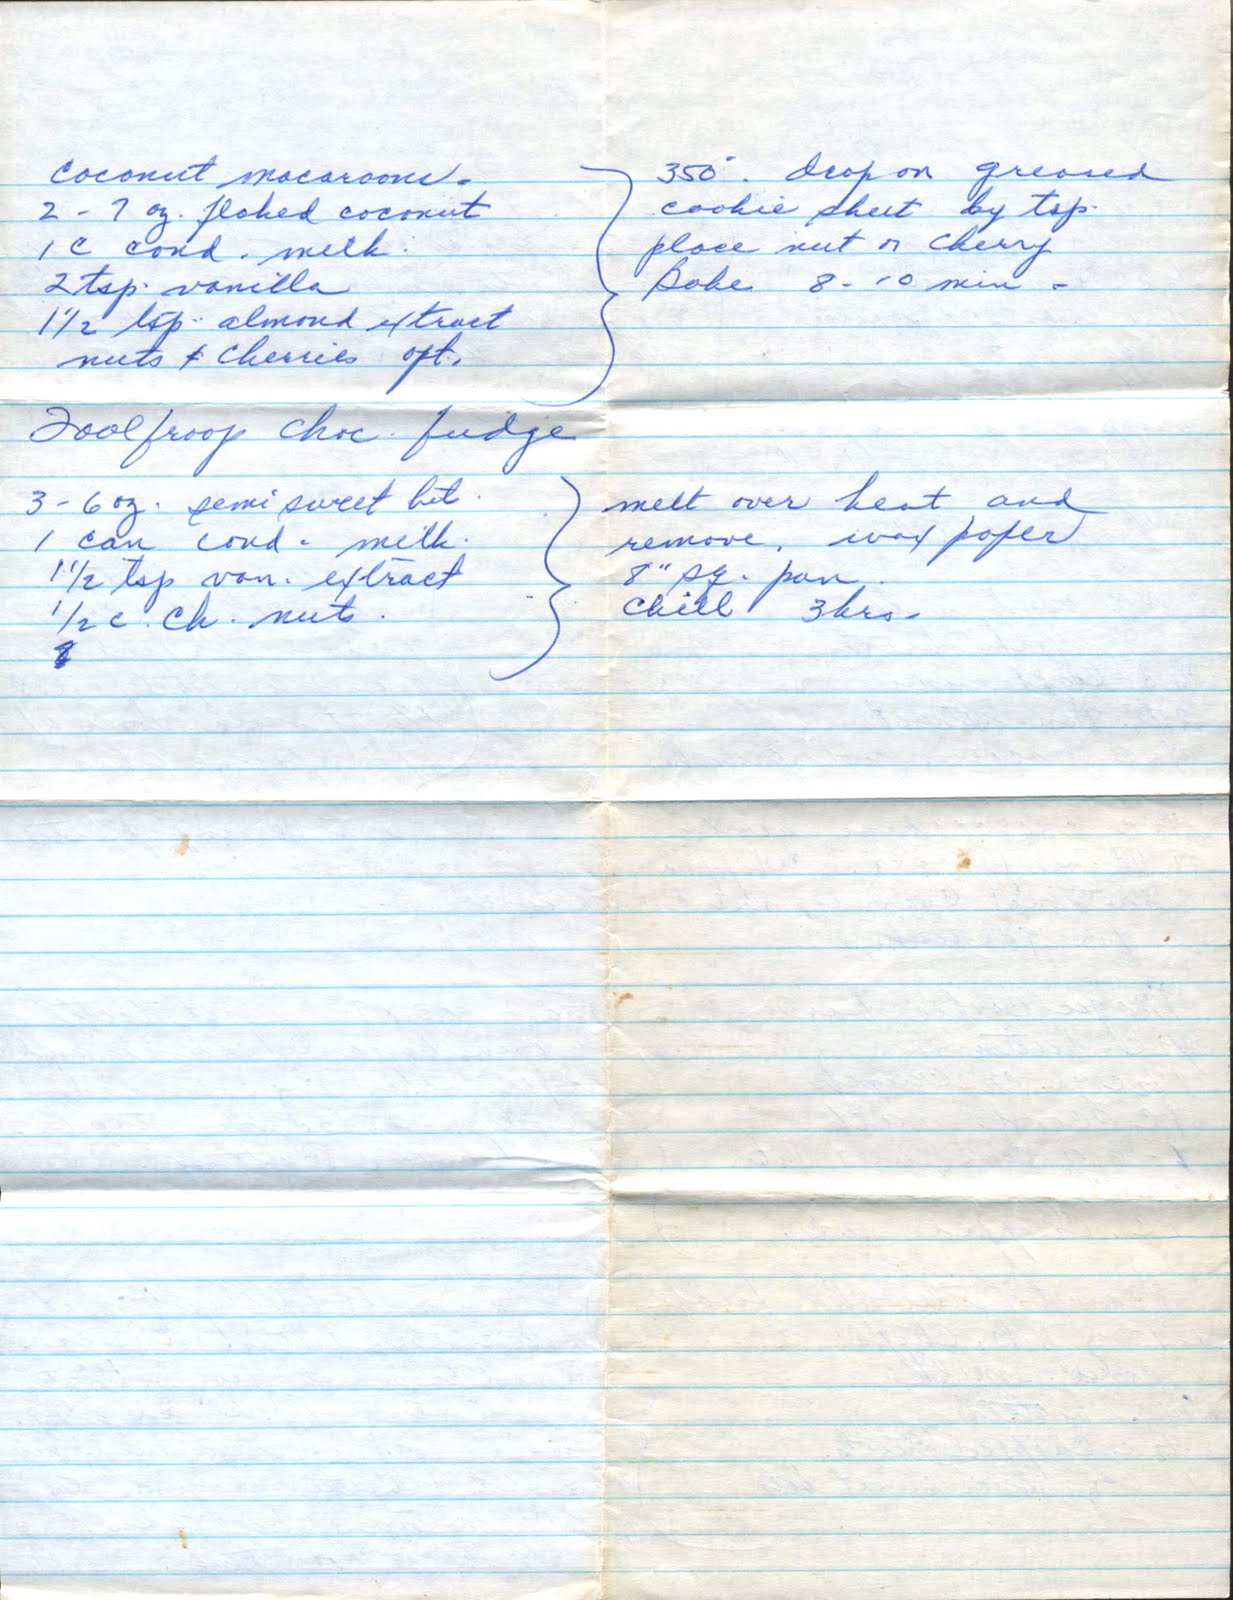 Coconut macaroons.
2 - 7 oz. flaked coconut
1 C cond. milk.
2 tsp. vanilla
1 1/2 tsp. almond extract
nuts & cherries opt.
350°. Drop on greased
cookie sheet by tsp.
place nut or cherry
Bake 8 - 10 min -
Foolproop choc. fudge
3 - 6 oz. semi sweet bit.
1 can cond. milk.
1 1/2 tsp van. extract
1/2 c. ch. nuts.
melt over heat and
remove. wax paper
8" sq. pan.
Chill 3 hrs.